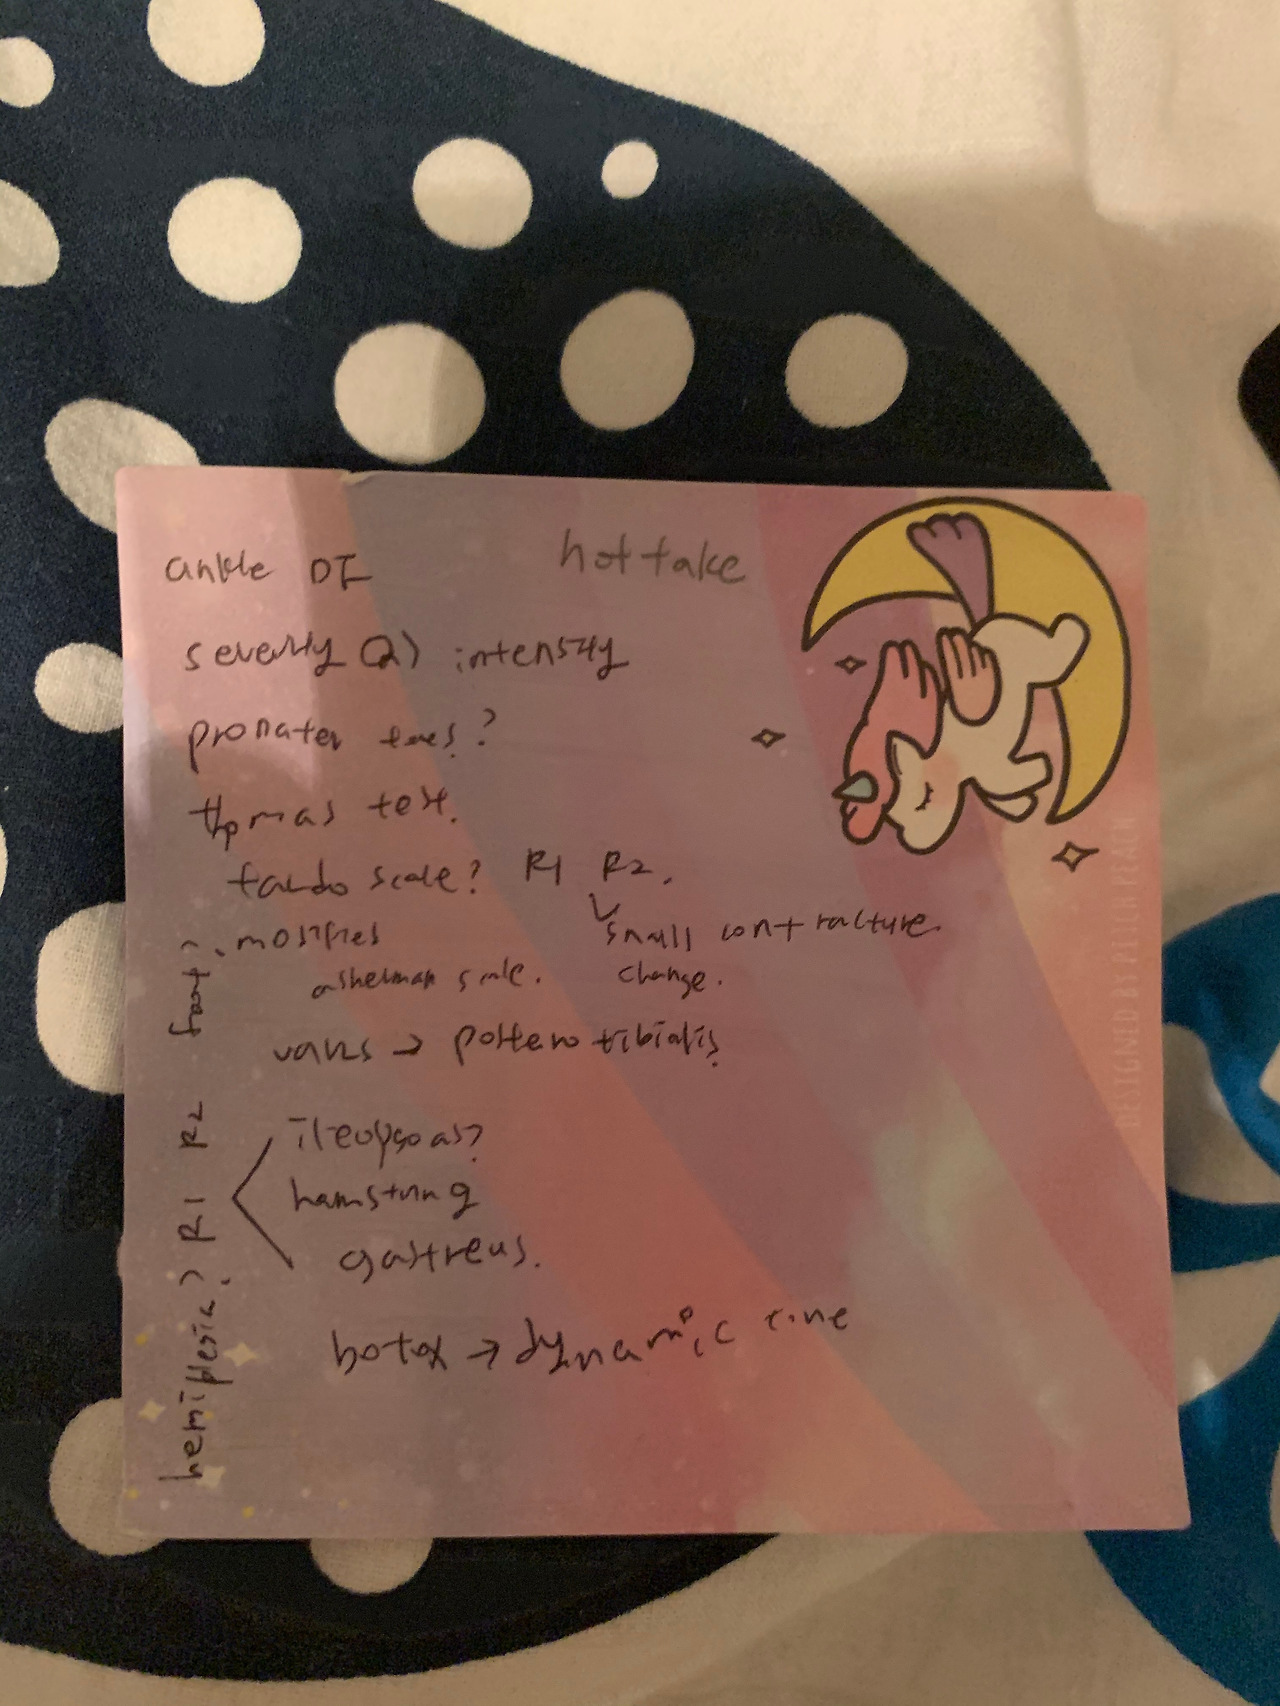 ankle DF
hot take
severity (2) intensity
pronater teres?
thomas test.
tardo scale? R1 R2.
small contracture.
change.
modifies
asherman scale.
varus → postero tibialis?
ileopsoas?
hamstring
gastreus.
botox → dynamic
hemiplesia? R1 R2
DESIGNED BY PITCH PEACH